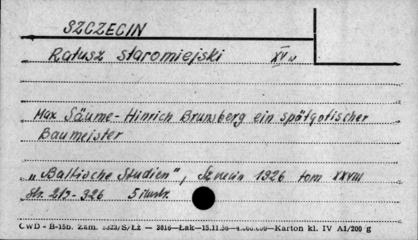 SZCZECIN
Ratusz staromiejski XV w
Max Säume - Hinrich Brunsberg ein spätgotischer
Baumeister
„Baltische Studien", 1926 tom XXVIII
str. 215-326 5 ilustr.
CWD - B-150. Zam. /S/Łź — 2016 —Łak—15.11.56— —Karton kl. IV A1/200 g